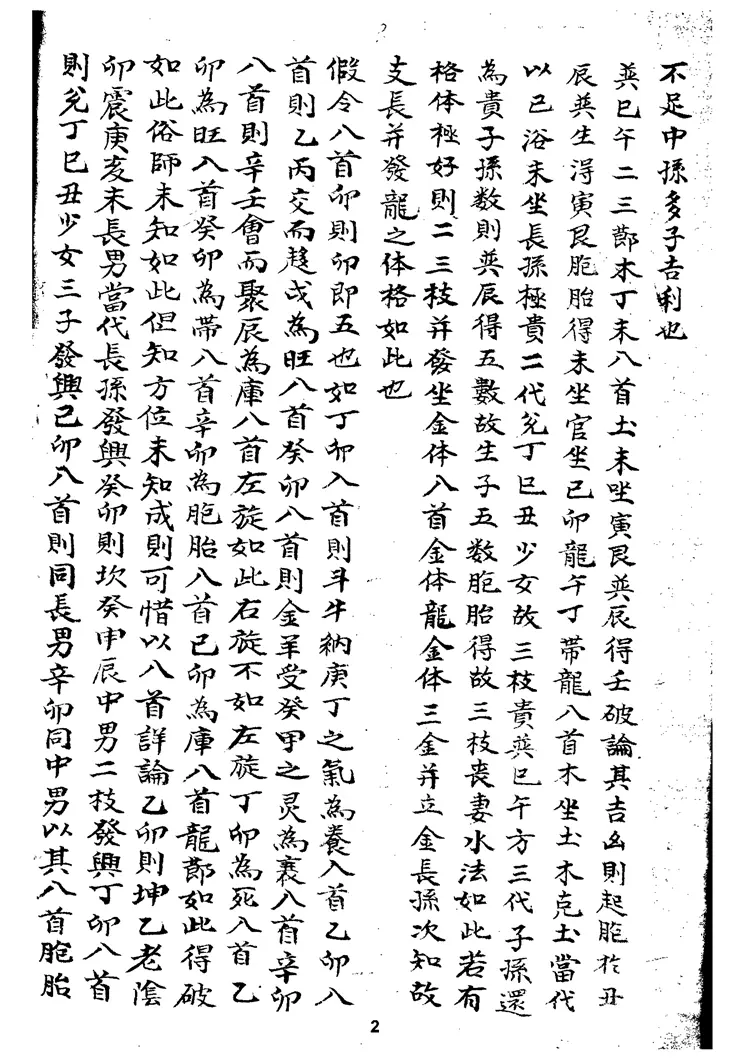 不足中孫多子吉利也
巽巳午二三節木丁未八首土未坐寅艮巽辰得壬破論其吉凶則起胞於丑
辰巽生得寅艮胞胎得未坐官坐己卯龍午丁帶龍八首木坐土木克土當代
以巳浴未坐長孫極貴二代兊丁巳丑少女故三枝貴巽巳午方三代子孫還
為貴子孫数則巽辰得五數故生子五数胞胎得故三枝喪妻水法如此若有
格体極好則二三枝并發坐金体八首金体龍金体三金并立金長孫次知故
支長并發龍之体格如此也
假令八首卯則卯即五也如丁卯入首則斗牛納庚丁之氣為養入首乙卯八
首則乙丙交而趍戌為旺八首癸卯八首則金羊受癸甲之灵為衰八首辛卯
八首則辛壬會而聚辰為庫八首左旋如此右旋不如左旋丁卯為死八首乙
卯為旺入首癸卯為帶八首辛卯為胞胎八首己卯為庫八首龍節如此得破
如此俗師未知如此但知方位未知成則可惜以八首詳論乙卯則坤乙老陰
卯震庚亥未長男當代長孫發興癸卯則坎癸申辰中男二枝發興丁卯八首
則兊丁巳丑少女三子發興己卯八首則同長男辛卯同中男以其八首胞胎
2